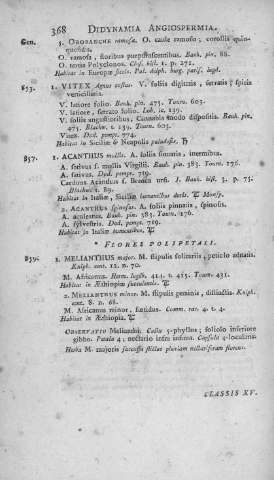 368 DIDYNAMIA ANGIOSPERMIA.
Gen. 3. OROBANCHE ramosa. O. caule ramoso; corollis quin-
quefidis.
O. ramosa, floribus purpurascentibus. Bauh. pin. 88.
O. tertia Polyclonos. Clus. hist. 1. p. 271.
Habitat in Europæ siccis.
833. 1. VITEX Agnus castus. V. foliis digitatis, serratis; spicis
verticillatis.
V. latiore folio. Bauh. pin. 475. Tourn. 603.
V. latiore, serrato folio.
V. foliis angustioribus, Cannabis modo dispositis. Bauh. pin.
475. Tourn. 603.
Vitex. Dod. pempt. 774.
Habitat in Siciliæ & Neapolis paludosis. ♄
837. 1. ACANTHUS mollis. A. foliis sinuatis, inermibus.
A. sativus s. mollis Virgilii. Bauh. pin. 383. Tourn. 176.
A. sativus. Dod. pempt. 719.
Carduus Acanthus s. Branca ursi. J. Bauh. hist. 3. p. 75.
89.
Habitat in Italiæ, Siciliæ
2. ACANTHUS spinosus. A. foliis pinnatis, spinosis.
A. aculeatus. Bauh. pin. 383. Tourn. 176.
A. silvestris. Dod. pempt. 719.
Habitat in Italiæ
* FLORES POLYPETALI.
839. 1. MELIANTHUS major. M. stipulis solitariis, petiolo adnatis.
Kniph. cent. 12. n. 70.
M. Africanus. Herm. lugdb. 414. t. 415. Tourn. 431.
Habitat in Æthiopiæ
2. MELIANTHUS minor. M. stipulis geminis, distinctis. Knip.
cent. 8. n. 68.
M. Africanus minor, foetidus. Comm. rar. 4. t. 4.
Habitat in Æthiopia.
OBSERVATIO Melianthi. Calyx 5-phyllus; foliolo inferiore
gibbo. Petala 4; nectario infra infima. Capsula 4-locularis.
Herba M. majoris succussa stillat pluviam nectariferam florens.
CLASSIS XV.